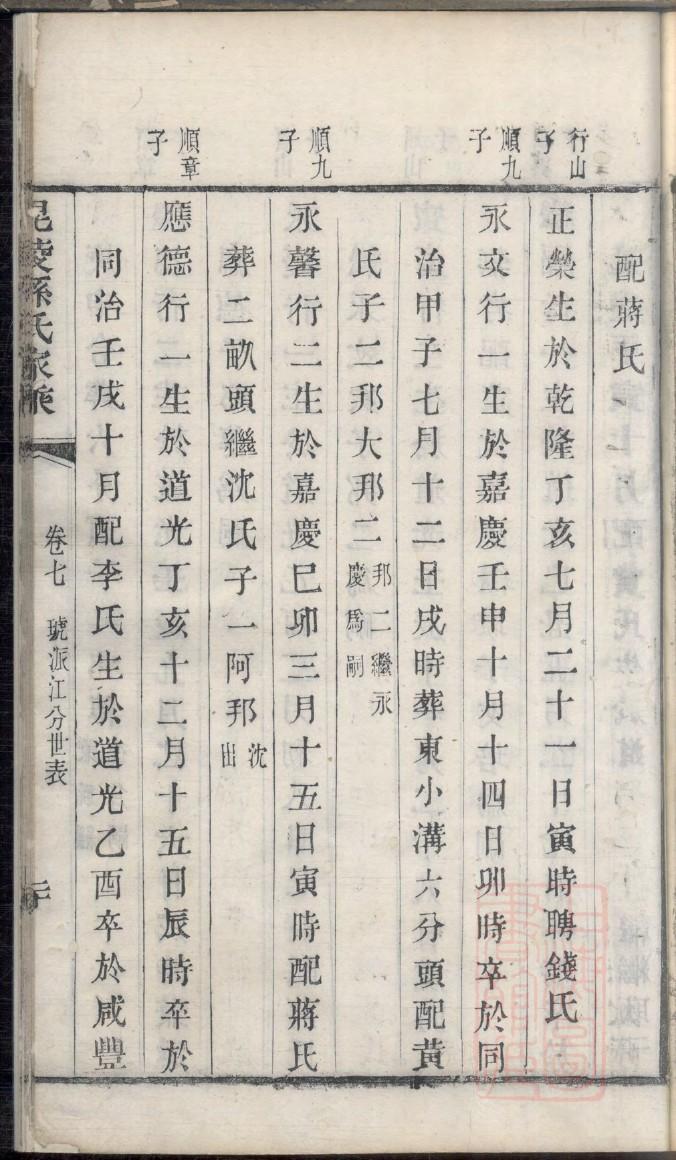 配蔣氏
行山子
正榮生於乾隆丁亥七月二十一日寅時聘錢氏
順九子
永交行一生於嘉慶壬申十月十四日卯時卒於同
治甲子七月十二日戌時葬東小溝六分頭配黃
氏子二邦大邦二邦二繼永慶爲嗣
順九子
永馨行二生於嘉慶巳卯三月十五日寅時配蔣氏
葬二畝頭繼沈氏子一阿邦沈出
順章子
應德行一生於道光丁亥十二月十五日辰時卒於
同治壬戌十月配李氏生於道光乙酉卒於咸豐
毘陵孫氏家乘
卷七 琥派江分世表
二十